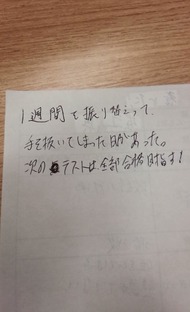 1週間を振り替えって、
手を抜いてしまった日があった。
次のテストは全部合格目指す!